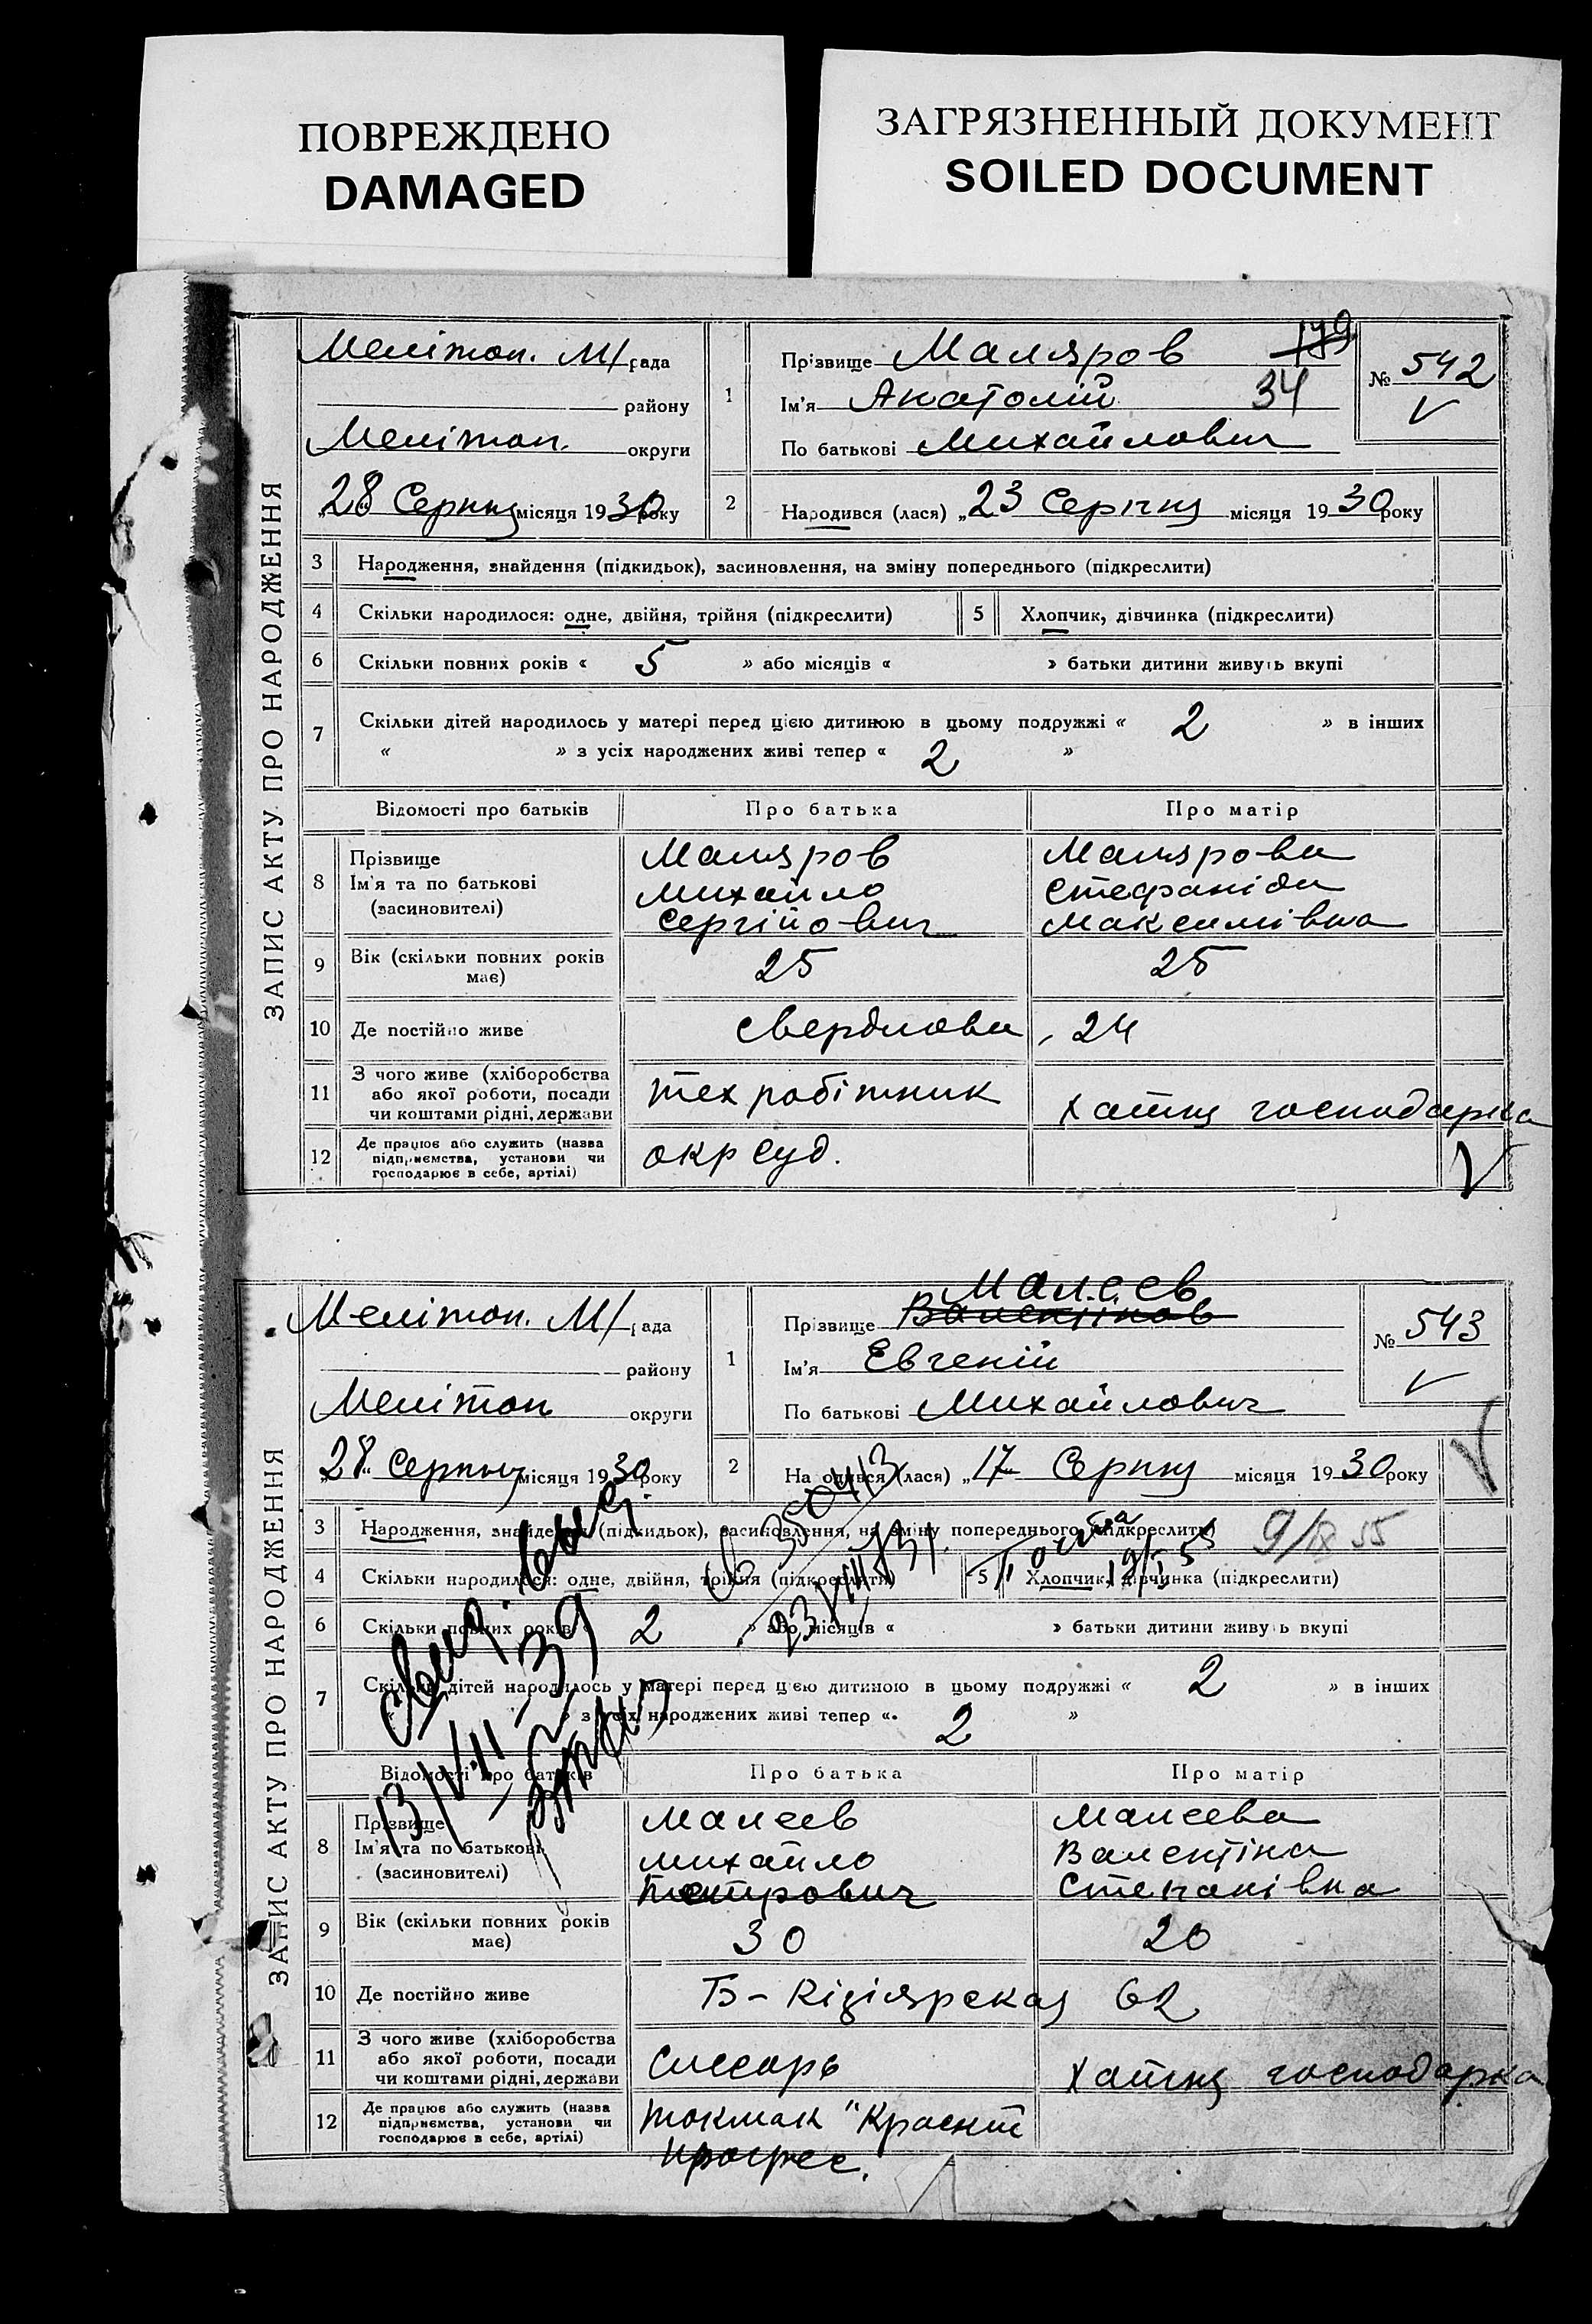 ПОВРЕЖДЕНО
DAMAGED
ЗАГРЯЗНЕННЫЙ ДОКУМЕНТ
SOILED DOCUMENT
ЗАПИС АКТУ ПРО НАРОДЖЕННЯ
Меліточ. М/рада
району
Меліточ. округи
„28" Серпня місяця 1930 року
1 Прізвище Маляров 179
Ім'я Анатолій 34
По батькові Михайлович
№ 542
2 Народився (лася) „23 Серпня місяця 1930 року
3 Народження, знайдення (підкидьок), засиновлення, на зміну попереднього (підкреслити)
4 Скільки народилося: одне, двійня, трійня (підкреслити) 5 Хлопчик, дівчинка (підкреслити)
6 Скільки повних років « 5 » або місяців « » батьки дитини живуть вкупі
7 Скільки дітей народилось у матері перед цією дитиною в цьому подружжі « 2 » в інших
« » з усіх народжених живі тепер « 2 »
Відомості про батьків Про батька Про матір
8 Прізвище Маляров Малярова
Ім'я та по батькові Михайло Стефаніда
(засиновителі) Сергійович Максимівна
9 Вік (скільки повних років має) 25 25
10 Де постійно живе Свердлова, 24
11 З чого живе (хліборобства
або якої роботи, посади
чи коштами рідні, держави тех робітник хатня господарка
12 Де працює або служить (назва
підприємства, установи чи
господарює в себе, артілі) окрсуд.
ЗАПИС АКТУ ПРО НАРОДЖЕННЯ
Меліточ. М/рада
району
Меліточ округи
„28" Серпня місяця 1930 року
Малєєв
1 Прізвище
Ім'я Евгеній
По батькові Михайлович
№ 543
2 Народився (лася) „17 Серпня місяця 1930 року
3 Народження, знайдення (підкидьок), засиновлення, на зміну попереднього (підкреслити)
9/IX 55
4 Скільки народилося: одне, двійня, трійня (підкреслити) 5 Хлопчик, дівчинка (підкреслити)
6 Скільки повних років « 2 » або місяців « » батьки дитини живуть вкупі
7 Скільки дітей народилось у матері перед цією дитиною в цьому подружжі « 2 » в інших
« » з усіх народжених живі тепер « 2 »
Відомості про батьків Про батька Про матір
8 Прізвище Малеев Малеева
Ім'я та по батькові Михайло Валентіна
(засиновителі) Петрович Степанівна
9 Вік (скільки повних років має) 30 20
10 Де постійно живе Б-Кізіярская 62
11 З чого живе (хліборобства
або якої роботи, посади
чи коштами рідні, держави Слесарь хатня господарка
12 Де працює або служить (назва
підприємства, установи чи
господарює в себе, артілі) Токмак "Красний
прогрес.